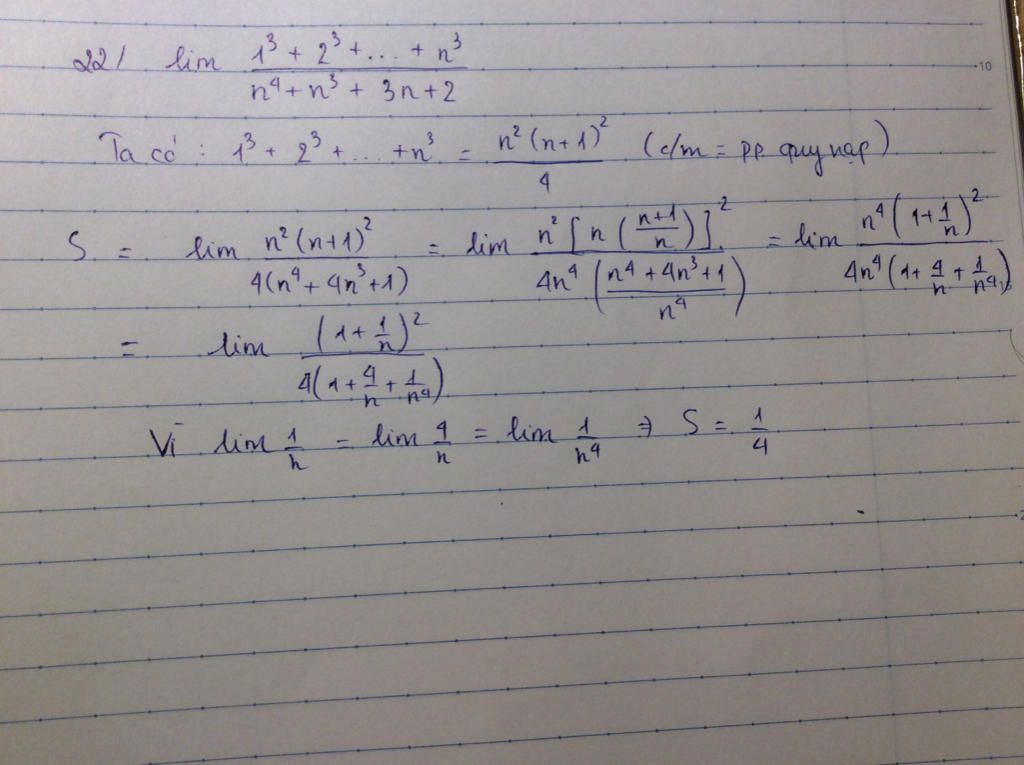 22/ lim (1³ + 2³ + ... + n³)/(n⁴ + n³ + 3n + 2)
Ta có : 1³ + 2³ + ... + n³ = n²(n+1)²/4 (c/m = pp quy nạp)
S = lim n²(n+1)²/4(n⁴ + 4n³ + 1) = lim n²[n((n+1)/n)]²/4n⁴((n⁴ + 4n³ + 1)/n⁴) = lim n⁴(1 + 1/n)²/4n⁴(1 + 4/n + 1/n⁴)
= lim (1 + 1/n)²/4(1 + 4/n + 1/n⁴)
Vì lim 1/n = lim 4/n = lim 1/n⁴ ⇒ S = 1/4
10